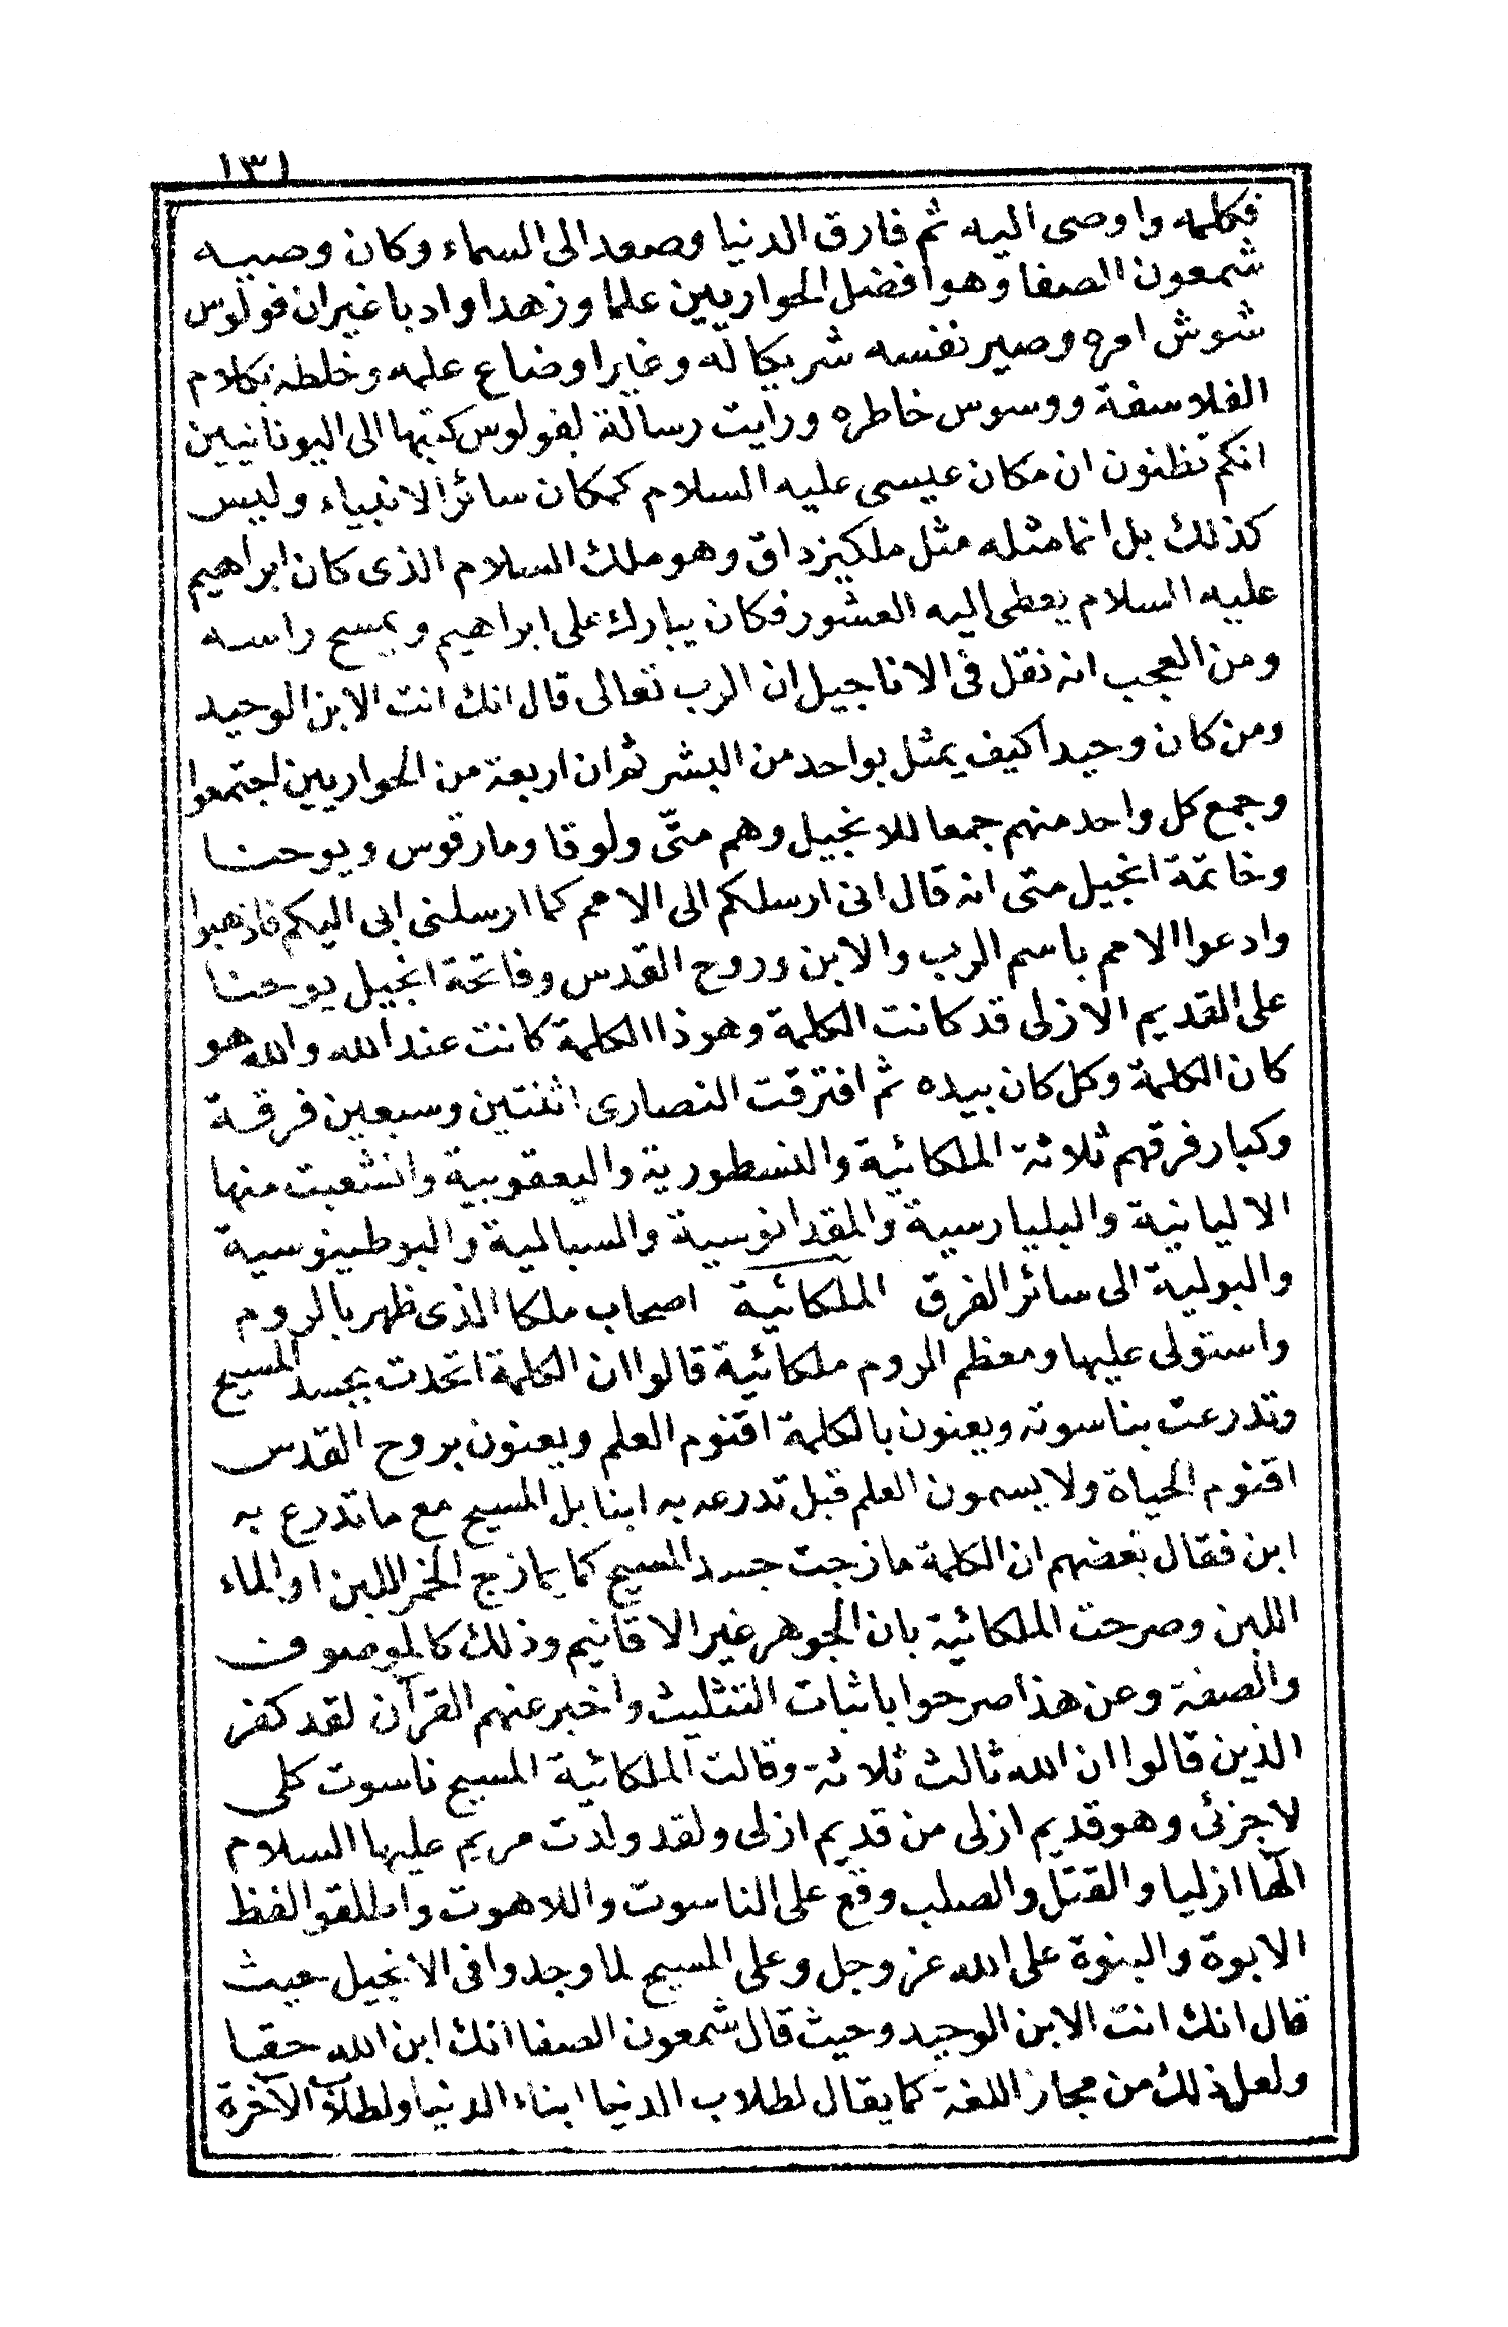 ١٣١
فكلمه واوصى اليه ثم فارق الدنيا وصعد الى السماء وكان وصيه
شمعون الصفا وهو افضل الحواريين علما وزهدا وادبا غير ان فولوس
شوش امره وصير نفسه شريكا له وغير اوضاع علمه وخلطه بكلام
الفلاسفة ووسوس خاطره ورايت رسالة لفولوس كتبها الى اليونانيين
انكم تظنون ان مكان عيسى عليه السلام كمكان سائر الانبياء وليس
كذلك بل انما مثله مثل ملكيزداق وهو ملك السلام الذى كان ابراهيم
عليه السلام يعطى اليه العشور فكان يبارك على ابراهيم ويمسح راسه
ومن العجب انه نقل فى الاناجيل ان الرب تعالى قال انك انت الابن الوحيد
ومن كان وحيدا كيف يمثل بواحد من البشر ثم ان اربعة من الحواريين اجتمعوا
وجمع كل واحد منهم جمعا للانجيل وهم متّى ولوقا ومارقوس ويوحنا
وخاتمة انجيل متى انه قال انى ارسلكم الى الامم كما ارسلنى ابى اليكم فاذهبوا
وادعوا الامم باسم الرب والابن وروح القدس وفاتحة انجيل يوحنا
على القديم الازلى قد كانت الكلمة وهوذا الكلمة كانت عند الله والله هو
كان الكلمة وكل كان بيده ثم افترقت النصارى اثنتين وسبعين فرقة
وكبار فرقهم ثلاثة الملكائية والنسطورية واليعقوبية وانشعبت منها
الاليانية والبليارسية والمقدانوسية والسبالية والبوطينوسية
والبولية الى سائر الفرق الملكائية اصحاب ملكا الذى ظهر بالروم
واستولى عليها ومعظم الروم ملكائية قالوا ان الكلمة اتحدت بجسد المسيح
وتدرعت بناسوته ويعنون بالكلمة اقنوم العلم ويعنون بروح القدس
اقنوم الحياة ولا يسمون العلم قبل تدرعه به ابنا بل المسيح مع ما تدرع به
ابن فقال بعضهم ان الكلمة مازجت جسد المسيح كما يمازج الخمر اللبن او الماء
اللبن وصرحت الملكائية بان الجوهر غير الاقانيم وذلك كالموصوف
والصفة وعن هذا صرحوا باثبات التثليث واخبر عنهم القرآن لقد كفر
الذين قالوا ان الله ثالث ثلاثة وقالت الملكائية المسيح ناسوت كلى
لا جزئى وهو قديم ازلى من قديم ازلى ولقد ولدت مريم عليها السلام
الٓها ازليا والقتل والصلب وقع على الناسوت واللاهوت واطلقوا لفظ
الابوة والبنوة على الله عز وجل وعلى المسيح لما وجدوا فى الانجيل حيث
قال انك انت الابن الوحيد وحيث قال شمعون الصفا انك ابن الله حقا
ولعل ذلك من مجاز اللغة كما يقال لطلاب الدنيا ابناء الدنيا ولطلاب الآخرة